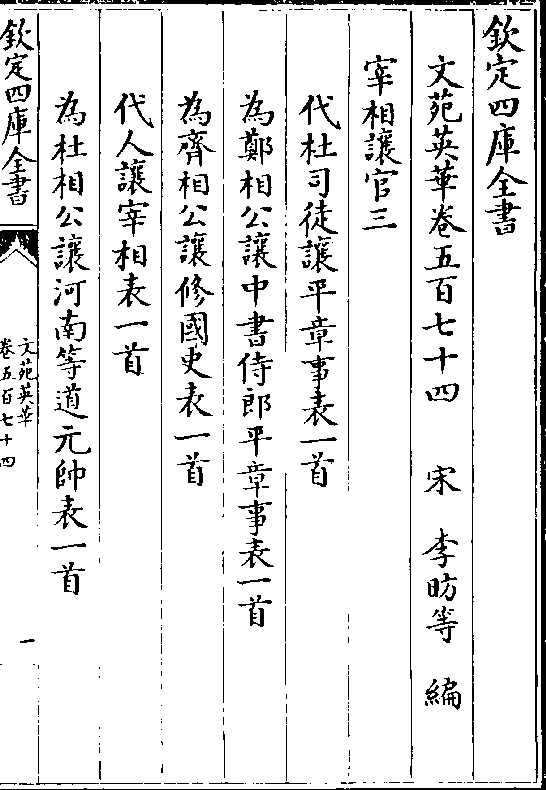 欽定四庫全書
文苑英華卷五百七十四 宋 李昉等 編
宰相讓官三
代杜司徒讓平章事表一首
為鄭相公讓中書侍郎平章事表一首
為齊相公讓修國史表一首
代人讓宰相表一首
為杜相公讓河南等道元帥表一首
欽定四庫全書
文苑英華
卷五百七十四
一